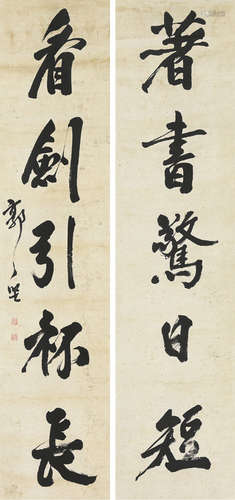 著書驚日短
看劍引杯長
郭